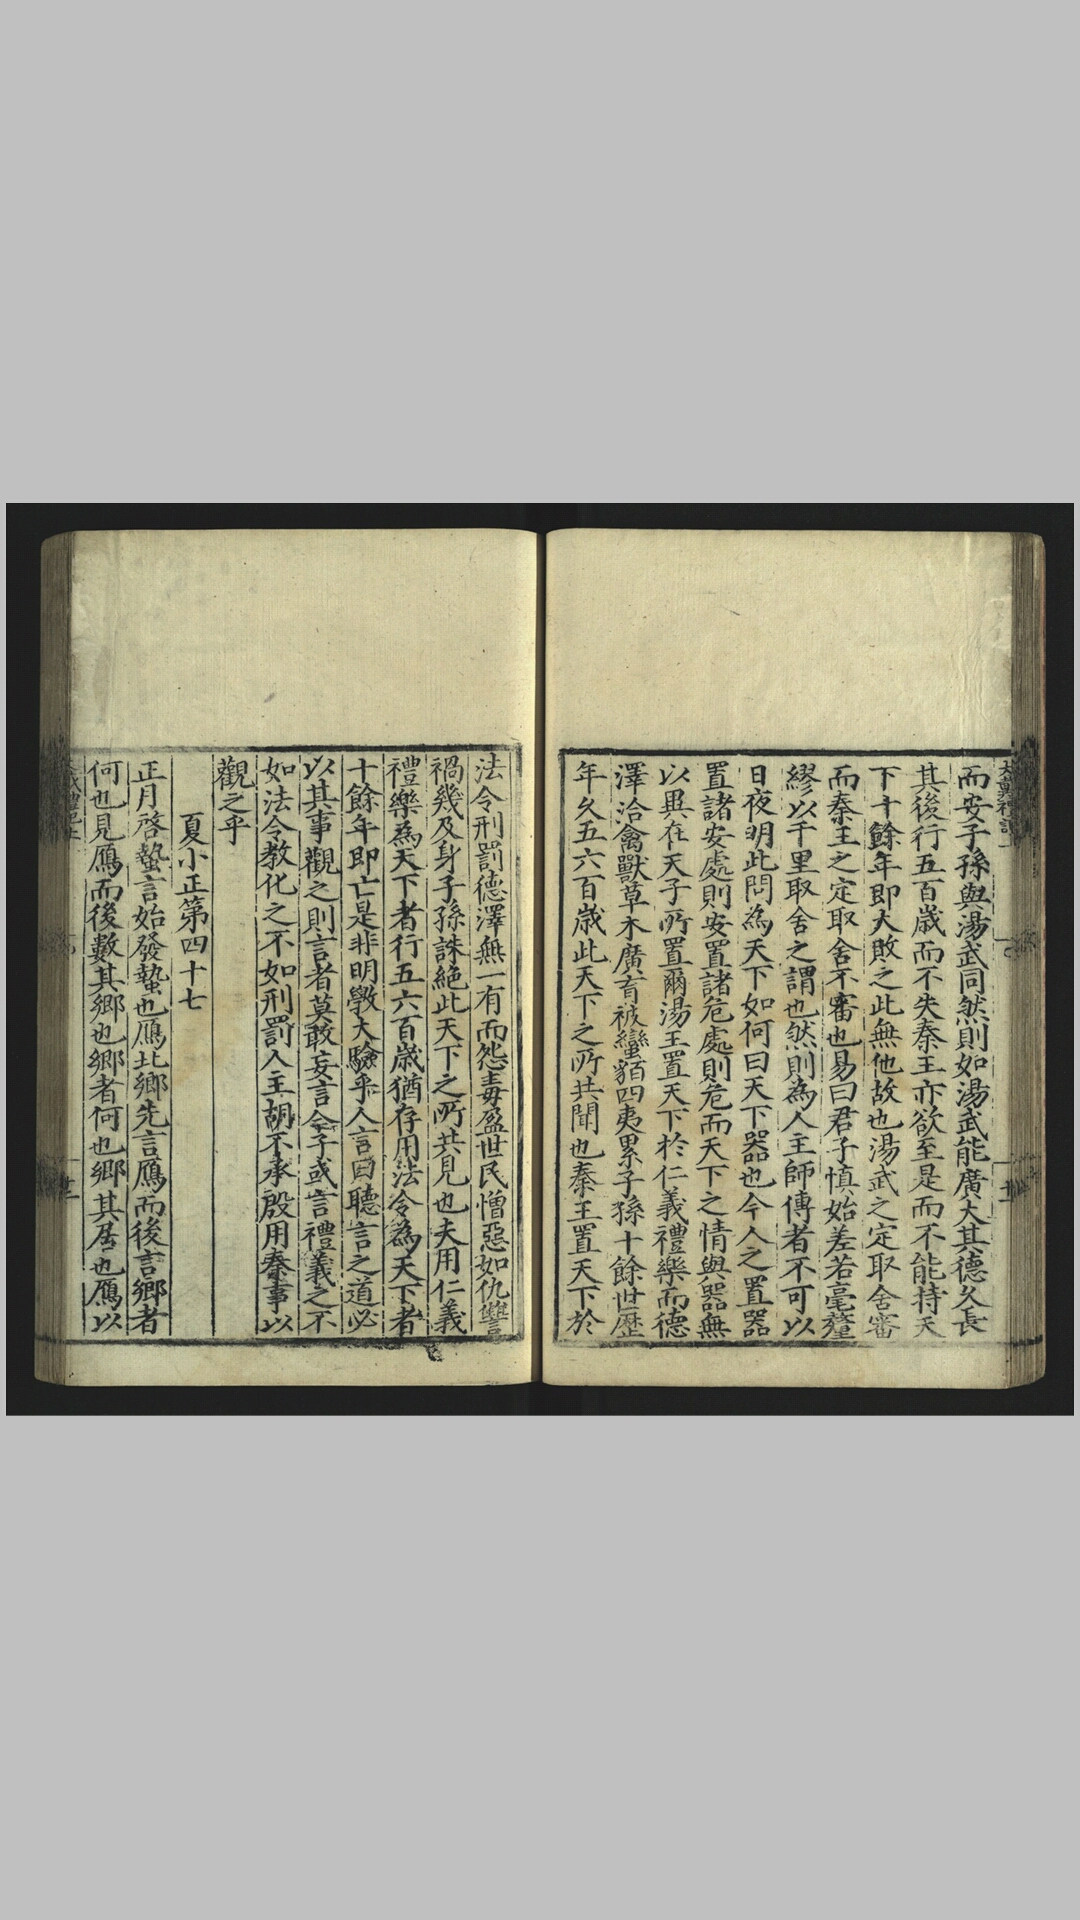 而安子孫與湯武同然則如湯武能廣大其德久長
其後行五百歲而不失秦王亦欲至是而不能持天
下十餘年即大敗之此無他故也湯武之定取舍審
而秦王之定取舍不審也易曰君子慎始差若毫釐
繆以千里取舍之謂也然則為人主師傅者不可以
日夜明此問為天下如何曰天下器也今人之置器
置諸安處則安置諸危處則危而天下之情與器無
以異在天子所置爾湯王置天下於仁義禮樂而德
澤洽禽獸草木廣育被蠻貊四夷累子孫十餘世歷
年久五六百歲此天下之所共聞也秦王置天下於
法令刑罰德澤無一有而怨毒盈世民憎惡如仇讐
禍幾及身子孫誅絕此天下之所共見也夫用仁義
禮樂為天下者行五六百歲猶存用法令為天下者
十餘年即亡是非明斆大驗乎人言曰聽言之道必
以其事觀之則言者莫敢妄言今子或言禮義之不
如法令教化之不如刑罰人主胡不承殷用秦事以
觀之乎
夏小正第四十七
正月啓蟄言始發蟄也鴈北鄉先言鴈而後言鄉者
何也見鴈而後數其鄉也鄉者何也鄉其居也鴈以